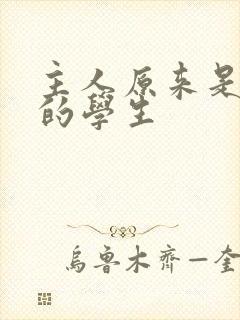 主人原来是
的學生
烏魯木齊—奎